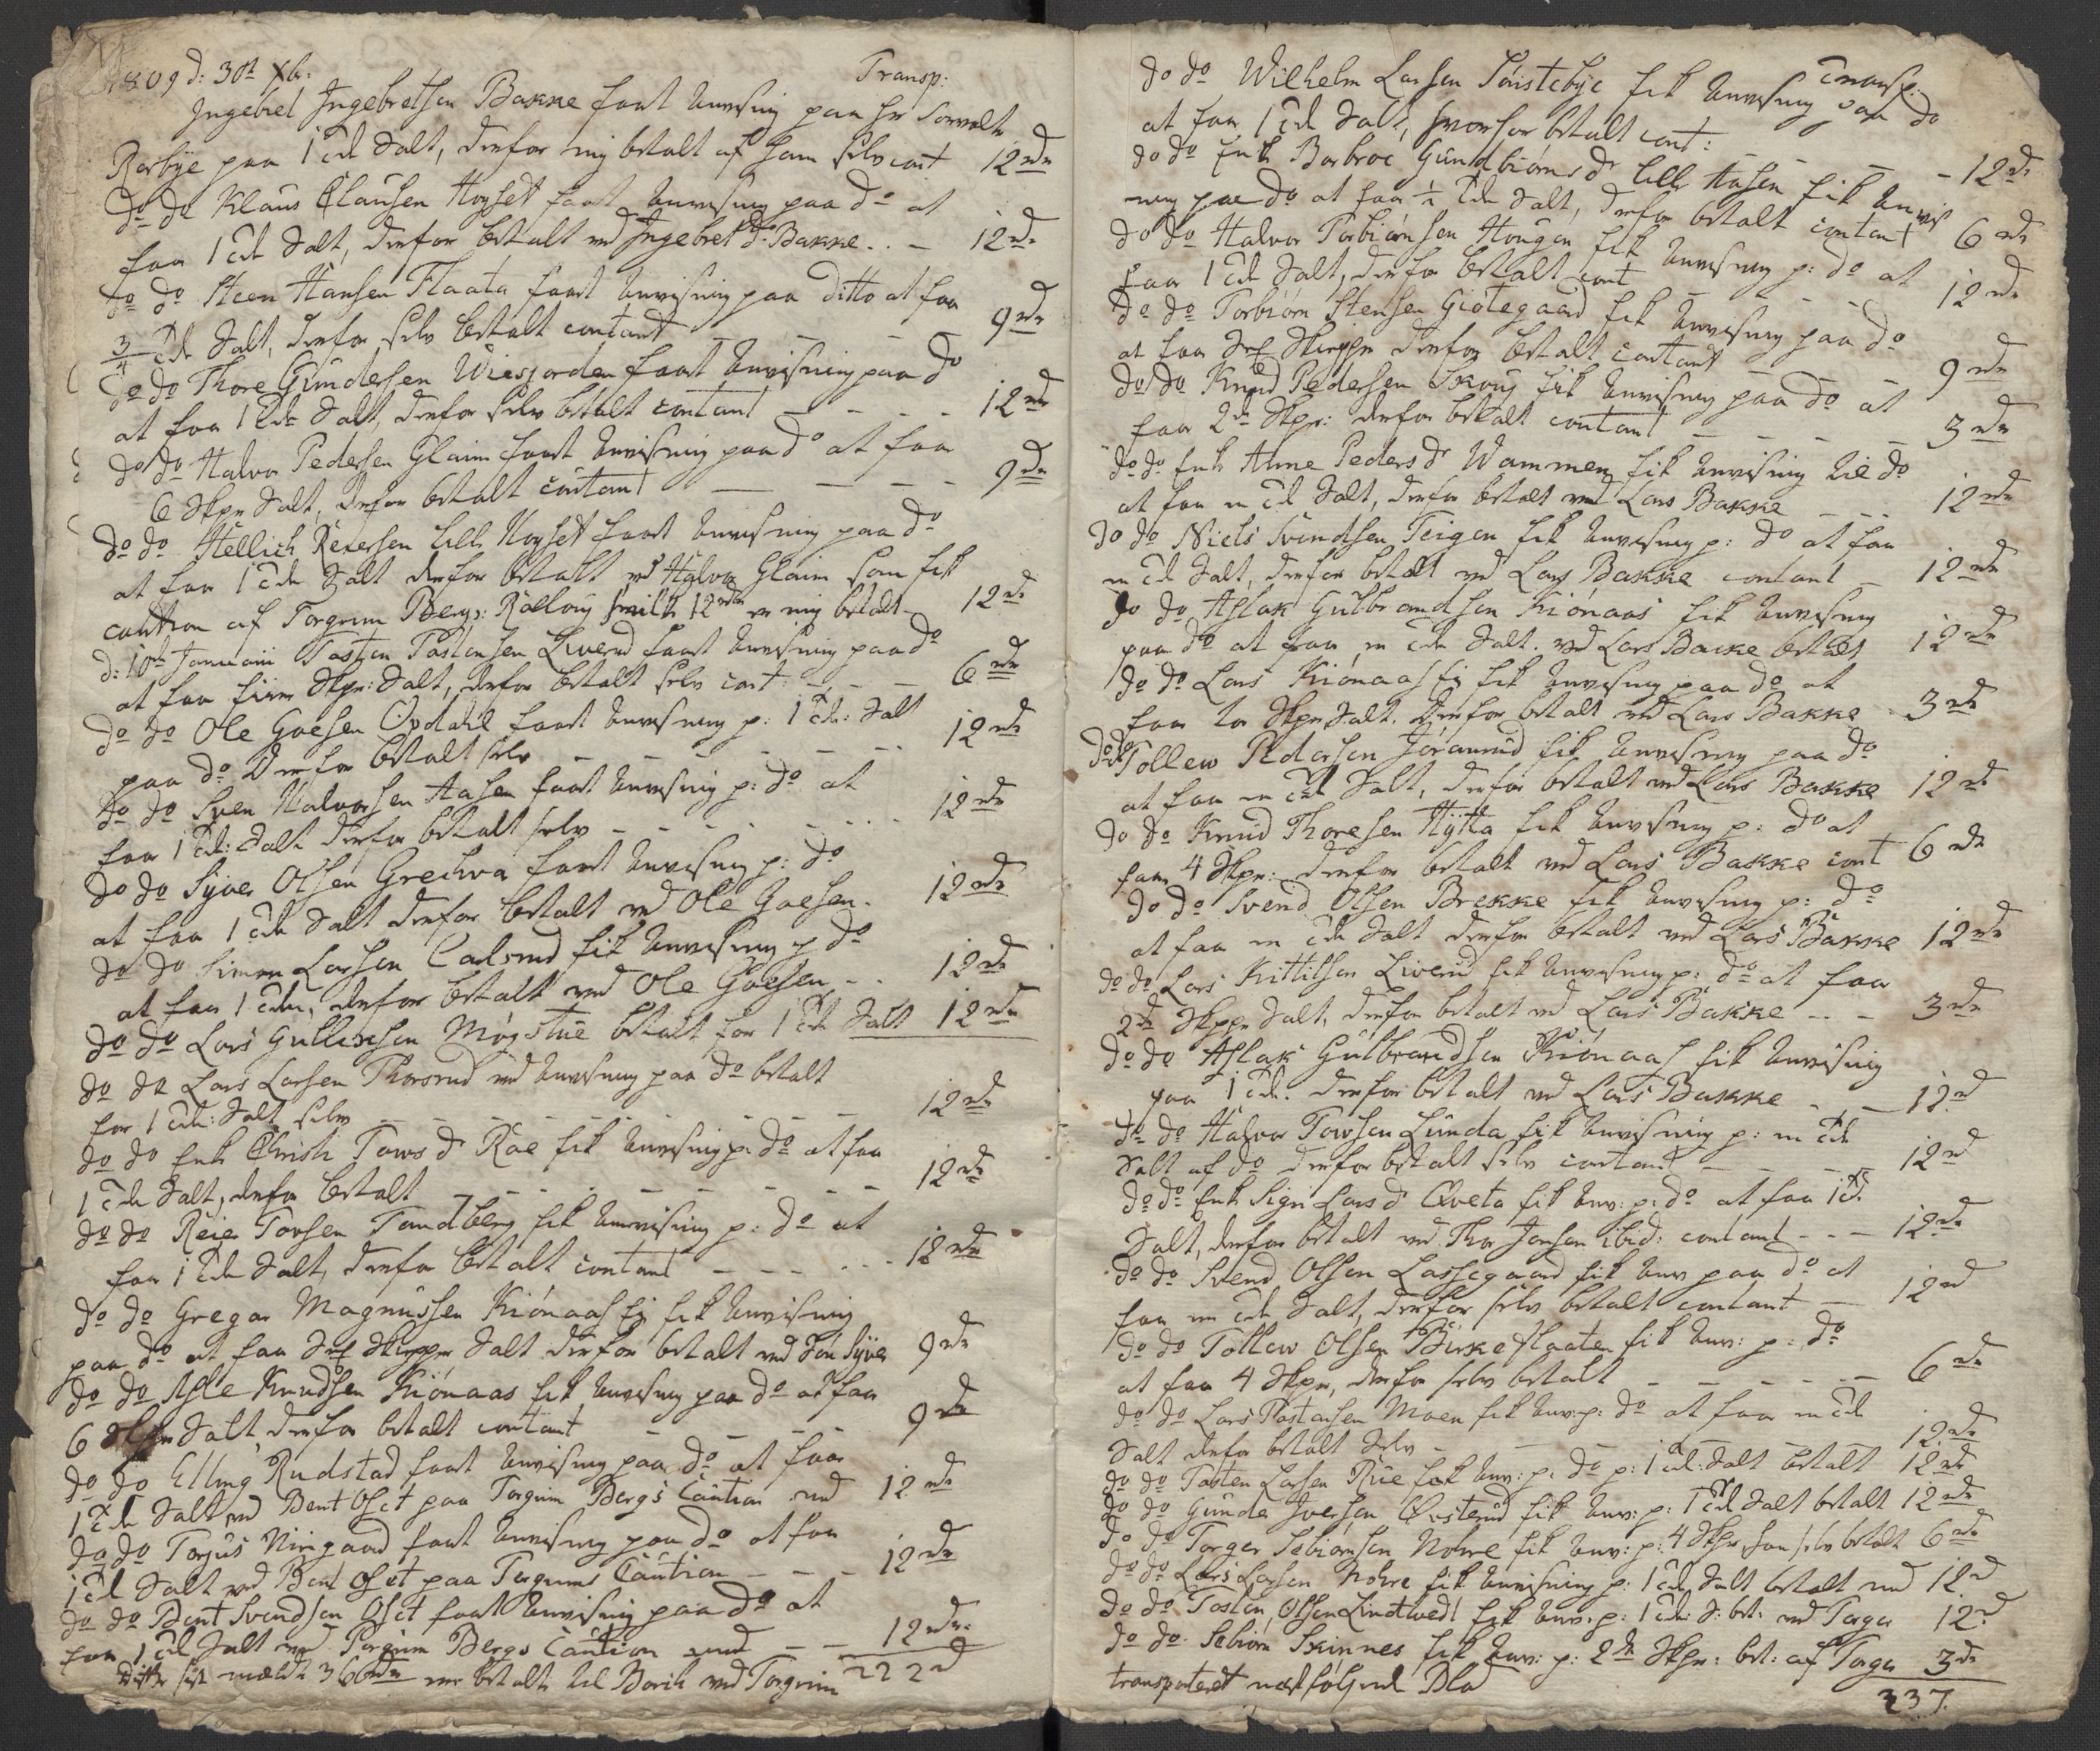 1809 d: 30te Xbr: Transp:
Ingebret Ingebretsen Bakke faaet Anvisning paa Hr
Rarbye paa 1 Tde Salt, derfor mig betalt af ham selv cont 12 rdr
do do Klaus Clausen Hoyset faaet Anvisning paa do at
faa 1 Tde Salt, derfor betalt ved Ingebret Bakke - - 12 rdr
do do Steen Hansen Flaata faaet Anvisning paa ditto at faa
3/4 Tde Salt, derfor selv betalt contant - - - 9 rdr
do do Thore Gundersen Wiesjorden faaet Anvisning paa do
at faa 1 Tde Salt, derfor selv betalt contant - - - - 12 rdr
do do Halvor Pedersen Glaim faaet Anvisning paa do at faa
6 Skpr Salt, derfor betalt contant - - - - 9 rdr
do do Hellich Reiersen Hoyset faaet Anvisning paa do
at faa 1 Tde Salt derfor betalt ved Halvor Glaim som fik
caution af Torgrim Bergs: hvilke 12 rdr er mig betalt - 12 rdr
d: 10de Januarii Tosten Tostensen Liverud faaet Anvisning paa do
at faa fiire Skpr: Salt, derfor betalt selv cont: - - 6 rdr
do do Ole Goesen Opdahl faaet Anvisning p: 1 Tde: Salt
paa do Derfor betalt selv - - - - - - 12 rdr
do do Sven Halvorsen Aasen faaet Anvisning p: do at
faa 1 Tde: Salt derfor betalt selv - - - - - - 12 rdr
do do Syver Olsen Grechva faaet Anvisning p: do
at faa 1 Tde Salt derfor betalt ved Ole Goesen - 12 rdr
do do Simen Larsen Carlsrud fik Anvisning p do
at faa 1 Tde, derfor betalt ved Ole Goesen - - 12 rdr
do do Lars Gullixsen Møgstue betalt for 1 Tde Salt 12 rdr
do do Lars Larsen Thorsrud ved Anvisning paa do betalt
for 1 Tde: Salt selv - - - - - - - 12 rdr
do do Enk Christi Tovsdr Raae fik Anvisning p: do at faa
1 Tde Salt, derfor betalt - - - - - - - 12 rdr
do do Reier Tovsen Tandberg fik Anvisning p: do at
faa 1 Tde Salt, derfor betalt contant - - - - - - 12 rdr
do do Gregar Magnussen Kiónaas Ej fik Anvisning
paa do at faa Sex Skiepper Salt derfor betalt ved Søn Syver 9 rdr
do do Asle Knudsen Kiónaas fik Anvisning paa do at faa
6 Skpr Salt derfor betalt contant - - - - 9 rdr
do do Elling Rudstad faaet Anvisning paa do at faa
1 Tde Salt ved Bent Oset paa Torgrim Bergs Caution med 12 rdr
do do Torjus Niirgaard faaet Anvisning paa do at faa
1 Tde Salt ved Bent Oset paa Torgrims Caution - - - 12 rdr
do do Bent Svendsen Oset faaet Anvisning paa do at
faa 1 Tde Salt ved Torgrim Bergs Caution med - - 12 rdr:
Disse sidst meldte 36 rdr er betalt til Borch ved Torgrim 222 rd
Transp:
do do Wilhelm Larsen Toistebye fik Anvisning paa do
at faa 1 Tde Salt, hvorfor betalt cont: - - - - 12 rdr
do do Enk Barbroe Gundbiørnsdr Aasen fik Anvis
ning paa do at faa 1/2 Tde Salt, derfor betalt contant 6 rdr
do do Halvor Torbiórnsen Haugen fik Anvisning p: do at
faa 1 Tde Salt, derfor betalt cont - - - - 12 rdr
do do Torbiørn Stensen Giótegaard fik Anvisning paa do
at faa Sex Skiepper derfor betalt contant - - - 9 rdr
do do Knud Pedersen Skoug fik Anvisning paa do at
faa 2de Skpr: derfor betalt contant - - - - 3 rdr
do do Enk Anne Pedersdr Wammen fik Anvisning til do
at faa en Tde Salt, derfor betalt ved Lars Bakke - - - 12 rdr
do do Niels Svendsen Teigen fik Anvisning p: do at faa
en Tde Salt, derfor betalt ved Lars Bakke contant - 12 rdr
do do Aslak Gulbrandsen Kiónaas fik Anvisning
paa do at faa en Tde Salt. ved Lars Backe betalt 12 rdr
do do Lars Kiónaas Ej fik Anvisning paa do at
faa to Skpr Salt. Derfor betalt ved Lars Bakke - 3 rdr
do do Tollew Pedersen Jóranrud fik Anvisning paa do
at faa en Tde Salt, derfor betalt ved Lars Bakke 12 rdr
do do Knud Thoresen Hytta fik Anvisning p: do at
faa 4 Skpr: derfor betalt ved Lars Bakke cont 6 rdr
do do Svend Olsen Brekke fik Anvisning p: do
at faa en Tde Salt derfor betalt ved Lars Bakke 12 rdr
do do Lars Kittilsen Liverud fik Anvisning p: do at faa
2de Skpr Salt, derfor betalt ved Lars Bakke - - - 3 rdr
do do Aslak Gulbrandsen Kiónaas fik Anvisning
paa 1 Tde: derfor betalt ved Lars Bakke - - 12 rd
do do Halvor Tovsen Lunda fik Anvisning p: en Tde
Salt af do derfor betalt selv contant - - - - 12 rd
do do Enk Sigri Larsdr Qveta fik Anv: p: do at faa 1 Td:
Salt, derfor betalt ved Thor Jonsen ibid: contant - - - 12 rdr
do do Svend Olsen Lassegaard fik Anv paa do at
faa en Tde Salt, derfor selv betalt contant - 12 rd
do do Tollew Olsen Birkeflaaten fik Anv: p: do
at faa 4 Skpr, derfor selv betalt - - - - - - 6 rdr
do do Lars Tostensen Moen fik Anv: p: do at faa en Tde
Salt derfor betalt selv - - - - - 12 rdr
do do Tosten Larsen Rue fik Anv: p: do p: 1 Tde: Salt betalt 12 rdr
do do Gunder Iversen Qvisterud fik Anv: p: 1 Tde Salt betalt 12 rdr
do do Torger Sebiørnsen Nohre fik Anv: p: 4 Skpr, han selv betalt 6 rdr
do do Lars Larsen Nohre fik Anvisning p: 1 Tde Salt betalt med 12 rd
do do Tosten Olsen Lindtvedt fik Anv: p: 1 Tde S: bet: ved Torger 12 rd
do do Sebiørn Skinnes fik Anv: p: 2de Skpr: bet: af Torger 3 rdr
transporteret næstfølgende Blad
237.